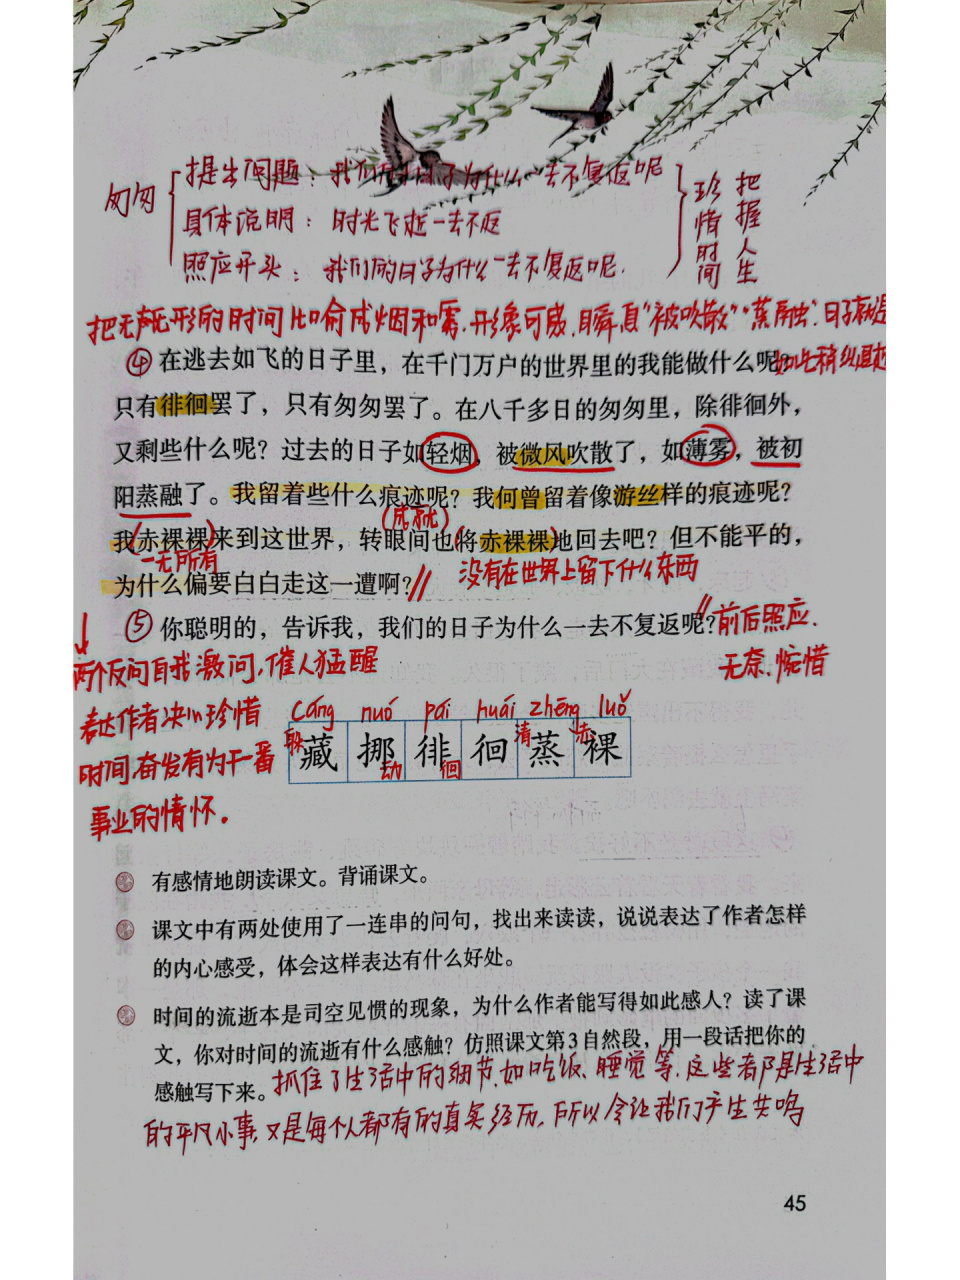 匆匆
提出问题：我们的日子为什么一去不复返呢
具体说明：时光飞逝一去不返
照应开头：我们的日子为什么一去不复返呢.
珍惜时间
把握人生
把无声无形的时间比喻成烟和雾.形象可感.瞬息"被吹散""蒸融".日子就是
如此稍纵即逝
④在逃去如飞的日子里，在千门万户的世界里的我能做什么呢？
只有徘徊罢了，只有匆匆罢了。在八千多日的匆匆里，除徘徊外，
又剩些什么呢？过去的日子如轻烟，被微风吹散了，如薄雾，被初
阳蒸融了。我留着些什么痕迹呢？我何曾留着像游丝样的痕迹呢？
我赤裸裸来到这世界，转眼间也将赤裸裸地回去吧？但不能平的，
一无所有
为什么偏要白白走这一遭啊？
没有在世界上留下什么东西
⑤你聪明的，告诉我，我们的日子为什么一去不复返呢？
前后照应.
无奈.惋惜
两个反问自我激问.催人猛醒
表达作者决心珍惜
时间.奋发有为干一番
事业的情怀.
cáng nuó pái huái zhēng luǒ
躲藏 挪动 徘徊 徊 清蒸 赤裸
有感情地朗读课文。背诵课文。
课文中有两处使用了一连串的问句，找出来读读，说说表达了作者怎样
的内心感受，体会这样表达有什么好处。
时间的流逝本是司空见惯的现象，为什么作者能写得如此感人？读了课
文，你对时间的流逝有什么感触？仿照课文第3自然段，用一段话把你的
感触写下来。
抓住了生活中的细节.如吃饭、睡觉等.这些都是生活中
的平凡小事.又是每个人都有的真实经历.所以会让我们产生共鸣
45